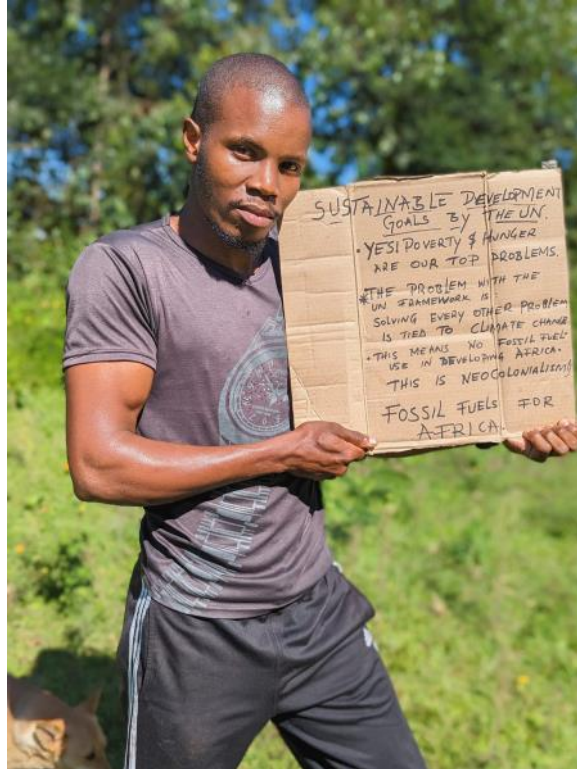 SUSTAINABLE DEVELOPMENT
GOALS BY THE UN.
• YES! POVERTY & HUNGER
ARE OUR TOP PROBLEMS.
* THE PROBLEM WITH THE
UN FRAMEWORK IS
SOLVING EVERY OTHER PROBLEM
IS TIED TO CLIMATE CHANGE
• THIS MEANS NO FOSSIL FUEL
USE IN DEVELOPING AFRICA.
THIS IS NEOCOLONIALISM!
FOSSIL FUELS FOR
AFRICA